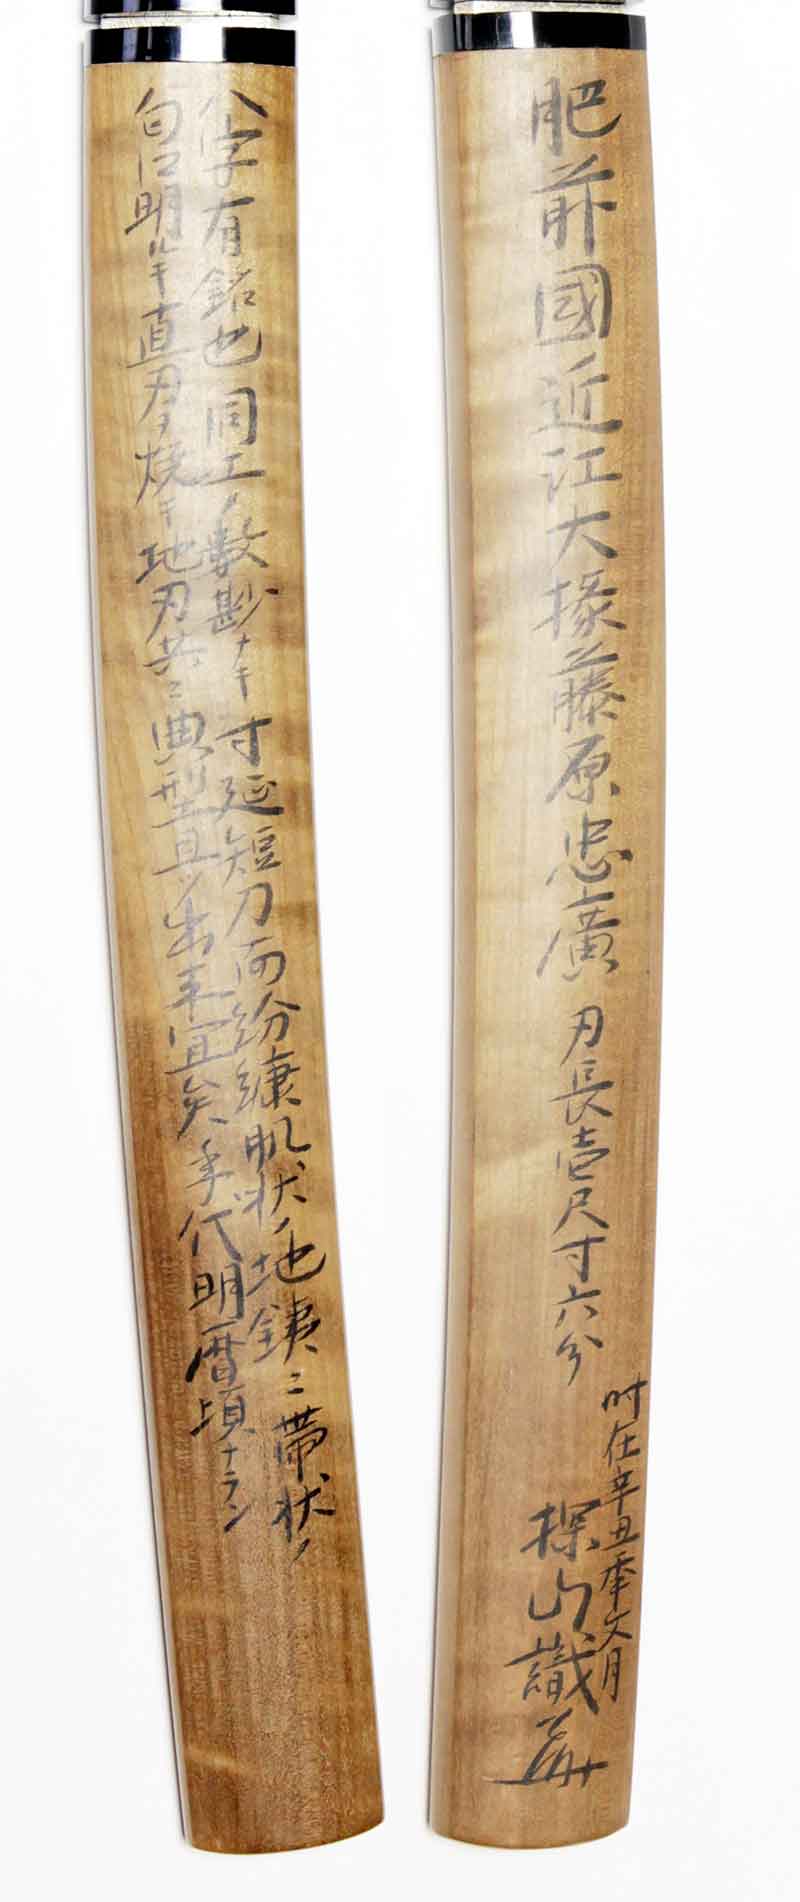 肥前國近江大掾藤原忠廣 刃長壱尺寸六分
时在辛丑季文月
探山識
八字有銘也同工ノ数尠ナキ寸延短刀而粉糠肌状ノ地銕ニ帯状ノ
匂口明ルキ直刃ヲ焼キ地刃共ニ典型且ツ出来宜矣年代明暦頃ナラン